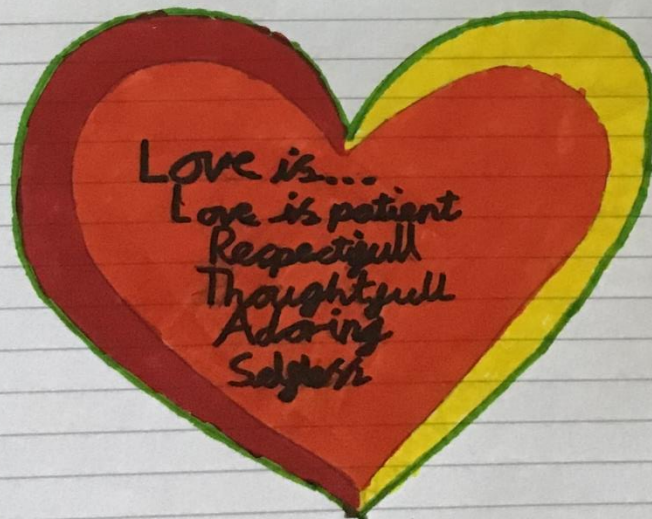 Love is...
Love is patient
Respectfull
Thoughtfull
Adoring
Selfless